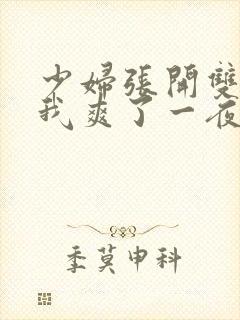 少婦張開雙
我爽了一夜
季莫申科